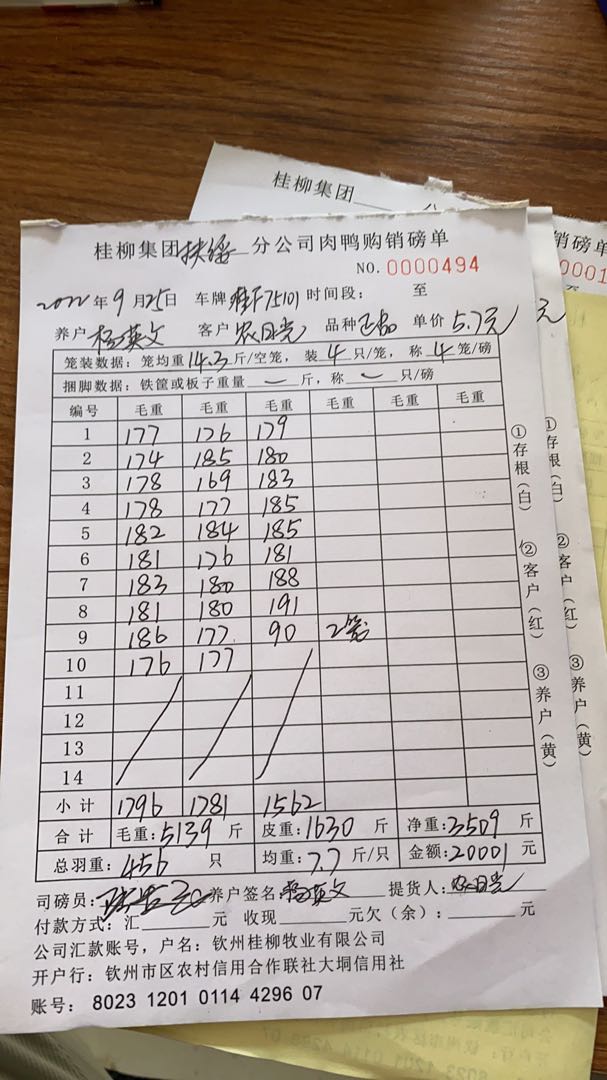 桂柳集团
销磅单
0001
元
桂柳集团扶绥分公司肉鸭购销磅单
NO. 0000494
2022年9月25日 车牌 75101 时间段： 至
养户 杨英文 客户 农日光 品种 正品 单价 5.7元
笼装数据：笼均重14.3斤/空笼，装4只/笼，称4笼/磅
捆脚数据：铁筐或板子重量一斤，称一只/磅
编号 毛重 毛重 毛重 毛重 毛重
1 177 176 179
2 174 185 180
3 178 169 183
4 178 177 185
5 182 184 185
6 181 176 181
7 183 180 188
8 181 180 191
9 186 177 90 2笼
10 176 177
11
12
13
14
小计 1796 1781 1562
合计 毛重：5139斤 皮重：1630斤 净重：3509斤
总羽重：456只 均重：7.7斤/只 金额：20001元
司磅员： 养户签名：杨英文 提货人：农日光
付款方式：汇 元 收现 元欠（余）： 元
公司汇款账号，户名：钦州桂柳牧业有限公司
开户行：钦州市区农村信用合作联社大垌信用社
账号：8023 1201 0114 4296 07
①存根（白）
②客户（红）
③养户（黄）
①存根（白）
②客户（红）
③养户（黄）